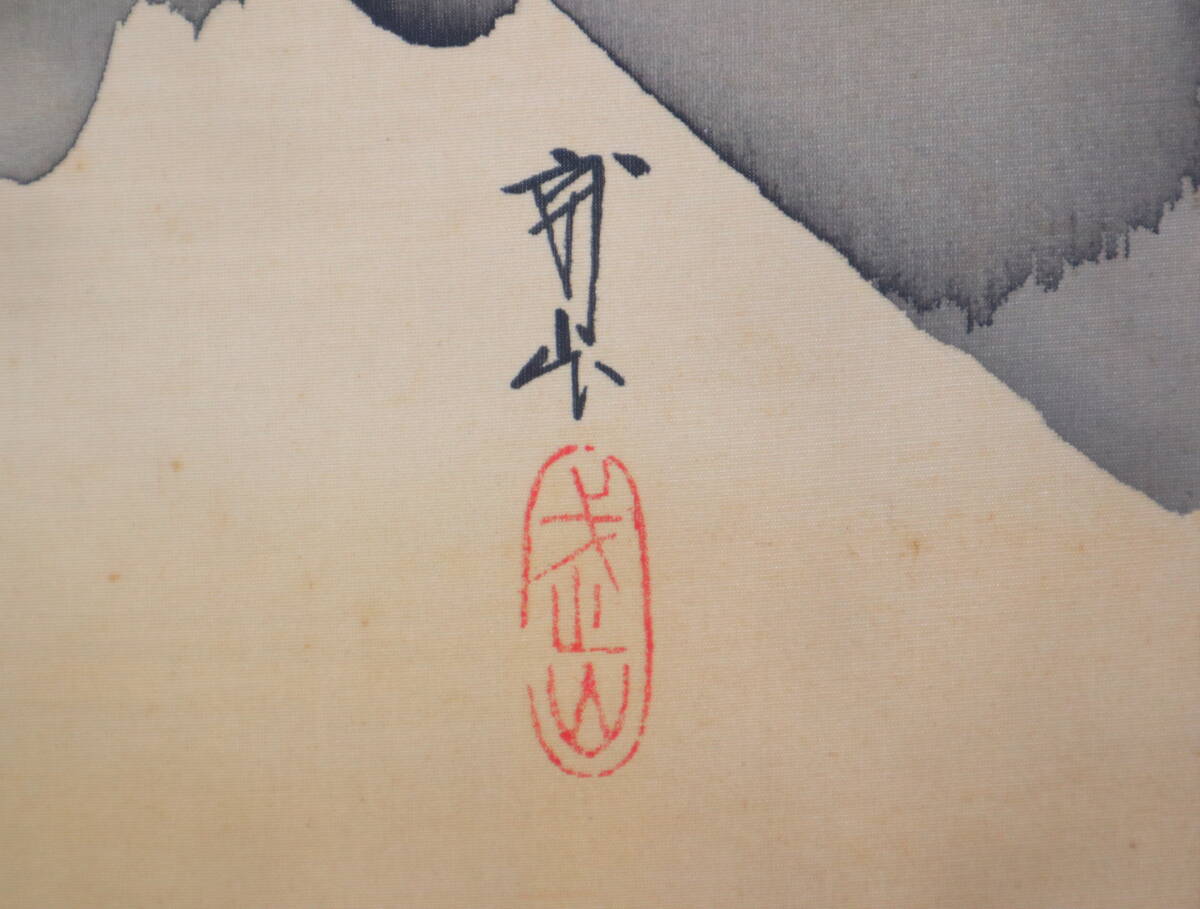 武山
武山